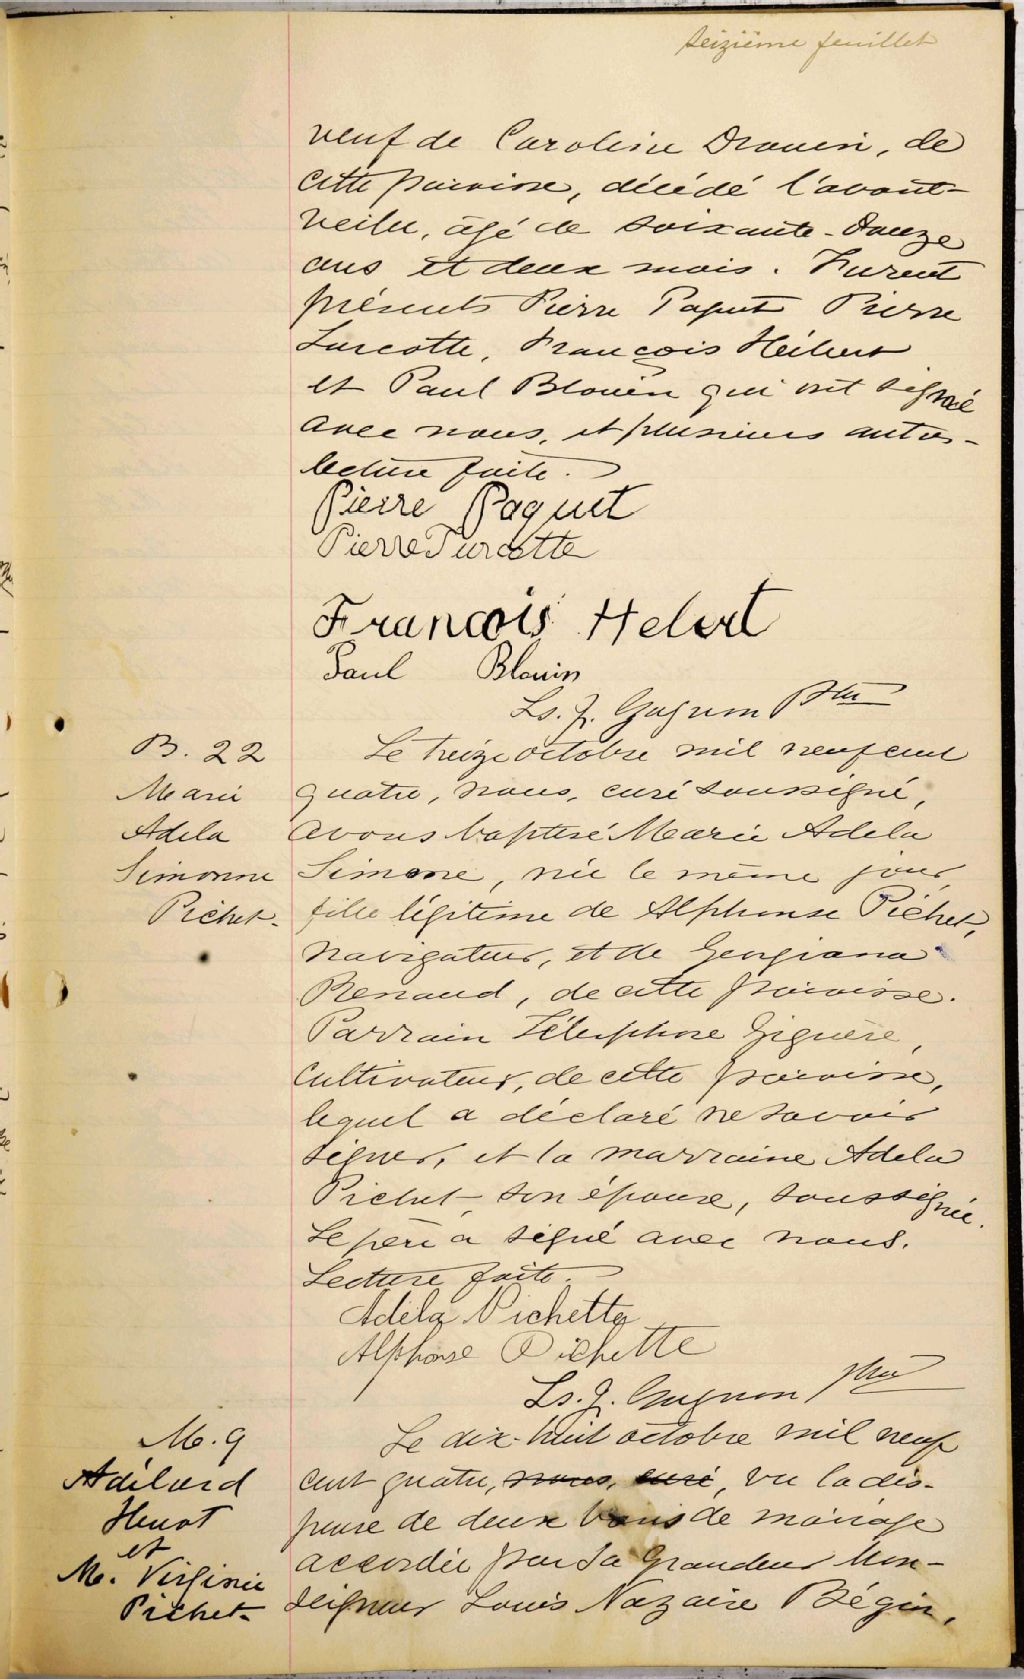 Seizième feuillet
veuf de Caroline Drouin, de
cette paroisse, décédé l'avant-
veille, âgé de soixante-douze
ans et deux mois. Furent
présents Pierre Paquet Pierre
Turcotte, François Hébert
et Paul Blouin qui ont signé
avec nous, et plusieurs autres-
lecture faite.
Pierre Paquet
Pierre Turcotte
Francois Hebert
Paul Blouin
Ls. J. Gagnon Ptre
B. 22
Marie
Adela
Simonne
Pichet-
Le treize octobre mil neuf cent
quatre, nous, curé soussigné,
avons baptisé Marie Adela
Simone, née le même jour,
fille légitime de Alphonse Pichet,
navigateur, et de Georgiana
Renaud, de cette paroisse.
Parrain Télesphore Giguère,
cultivateur, de cette paroisse,
lequel a déclaré ne savoir
signer, et la marraine Adela
Pichet son épouse, soussignée.
Le père a signé avec nous.
Lecture faite.
Adéla Pichette
Alphonse Pichette
Ls. J. Gagnon Ptre
M. 9
Adélard
Henot
et
M. Virginie
Pichet-
Le dix-huit octobre mil neuf
cent quatre, nous, curé, vu la dis-
pense de deux bans de mariage
accordée par Sa Grandeur Mon-
seigneur Louis Nazaire Bégin,